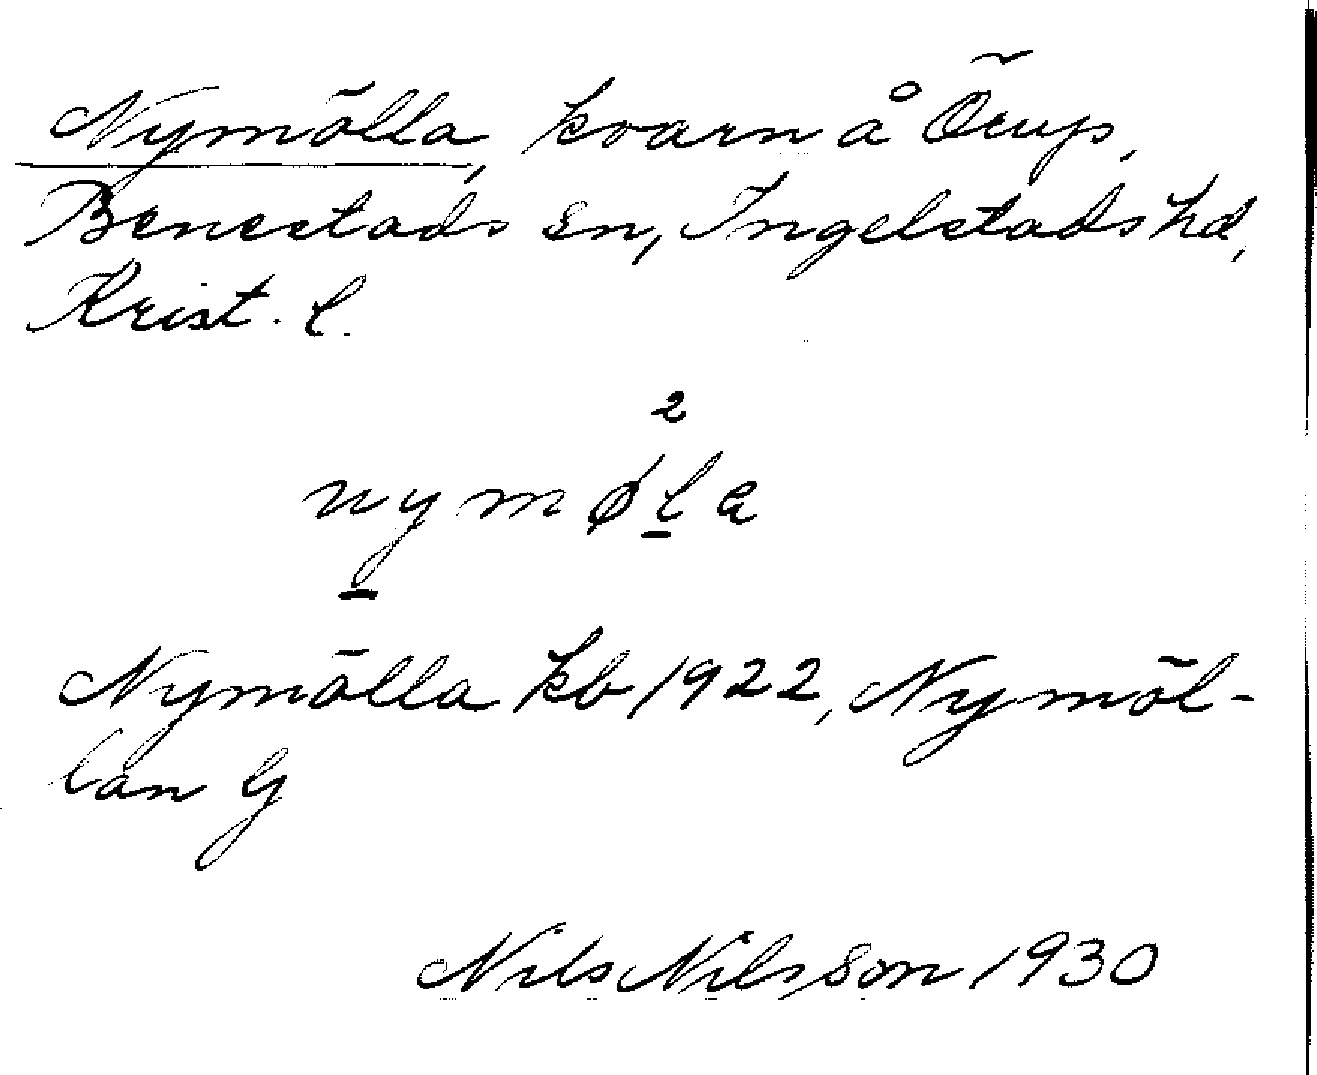 Nymölla, kvarn å Örup,
Benestads sn, Ingelstads hd,
Krist. l.
2
nymøla
Nymölla kb 1922, Nymöl-
lan G
Nils Nilsson 1930